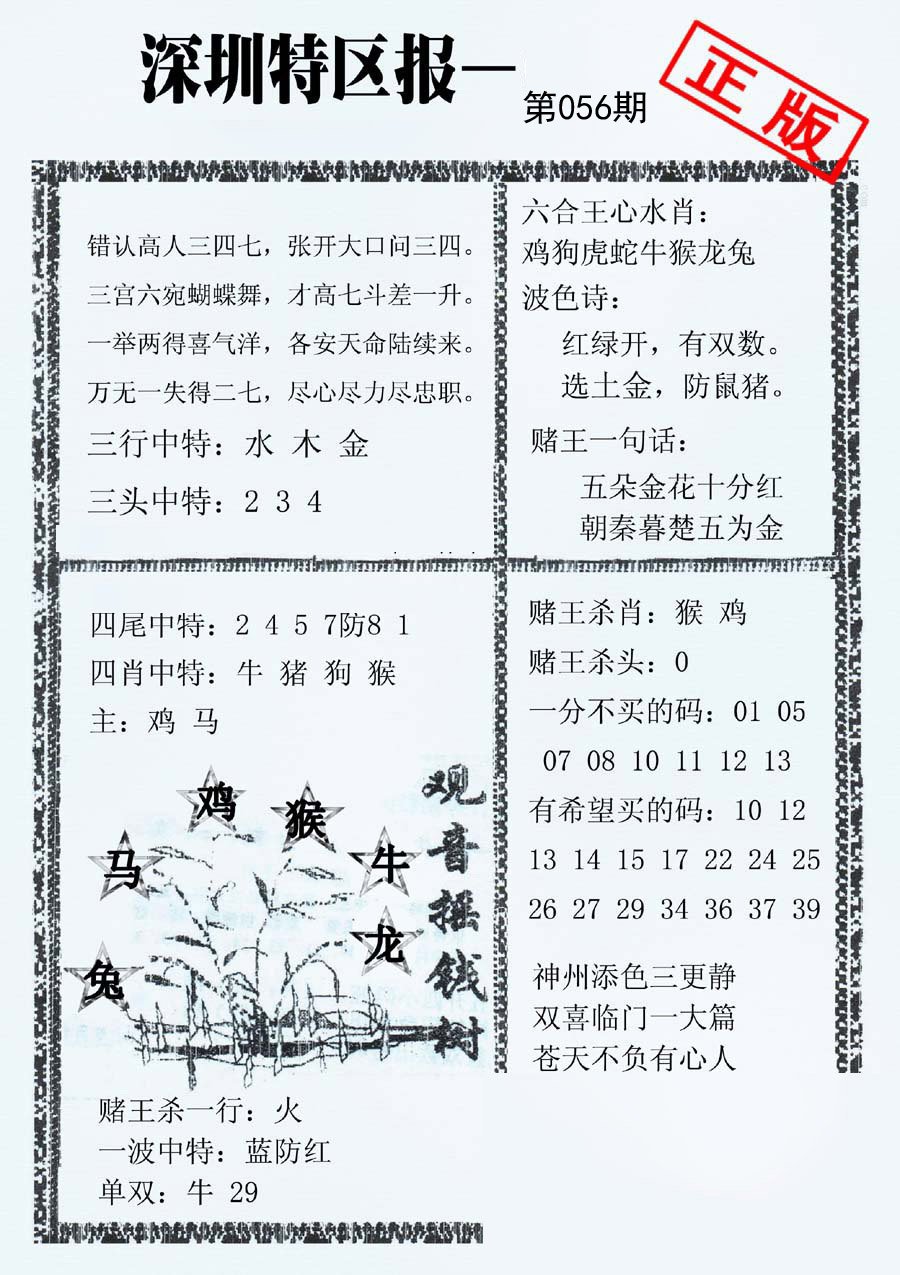 深圳特区报一
第056期
正版
错认高人三四七，张开大口问三四。
三宫六宛蝴蝶舞，才高七斗差一升。
一举两得喜气洋，各安天命陆续来。
万无一失得二七，尽心尽力尽忠职。
三行中特：水 木 金
三头中特：2 3 4
六合王心水肖：
鸡狗虎蛇牛猴龙兔
波色诗：
红绿开，有双数。
选土金，防鼠猪。
赌王一句话：
五朵金花十分红
朝秦暮楚五为金
四尾中特：2 4 5 7防8 1
四肖中特：牛 猪 狗 猴
主：鸡 马
鸡
猴
马
牛
龙
兔
观音摇钱树
赌王杀一行：火
一波中特：蓝防红
单双：牛 29
赌王杀肖：猴 鸡
赌王杀头：0
一分不买的码：01 05
07 08 10 11 12 13
有希望买的码：10 12
13 14 15 17 22 24 25
26 27 29 34 36 37 39
神州添色三更静
双喜临门一大篇
苍天不负有心人